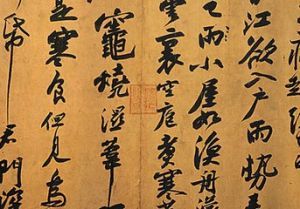 病起
江欲入戶雨勢來
已雨小屋如漁舟
雲裏空庖煮寒
竈燒濕葦
是寒食但見烏
帋君門深